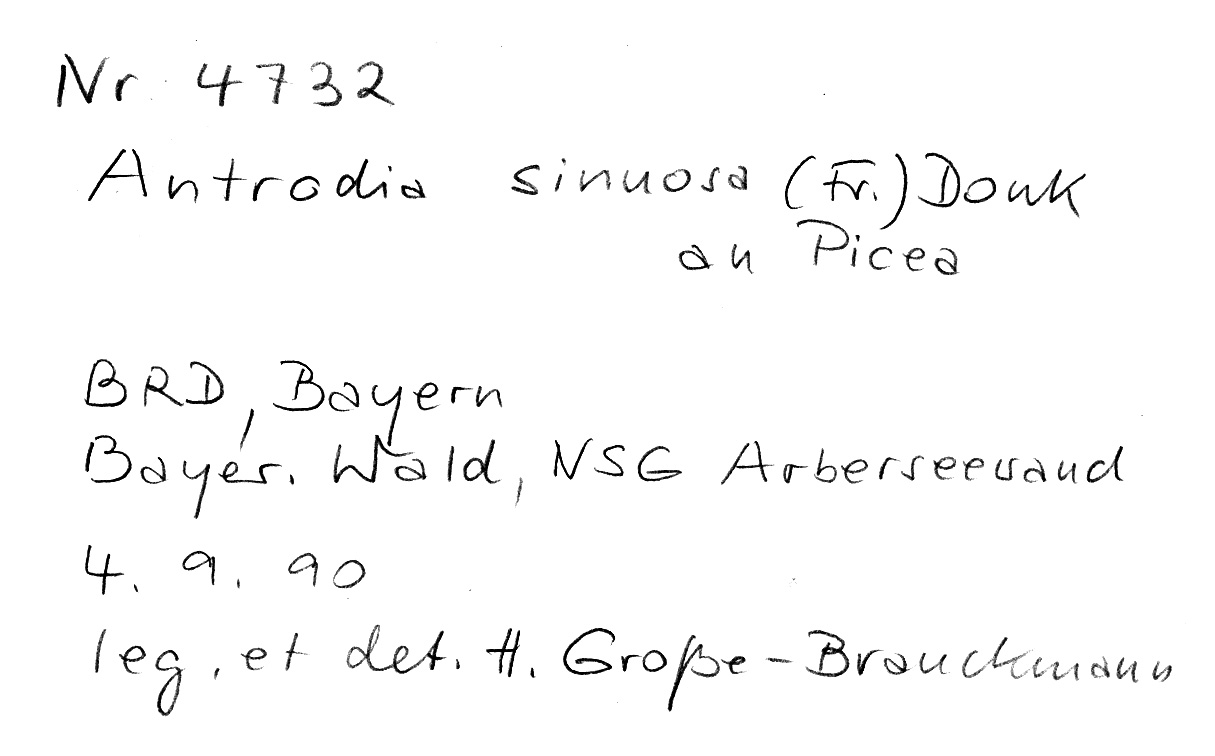 Nr. 4732
Antrodia sinuosa (Fr.) Donk
an Picea
BRD, Bayern
Bayer. Wald, NSG Arberseewand
4. 9. 90
leg. et det. H. Große-Brauckmann